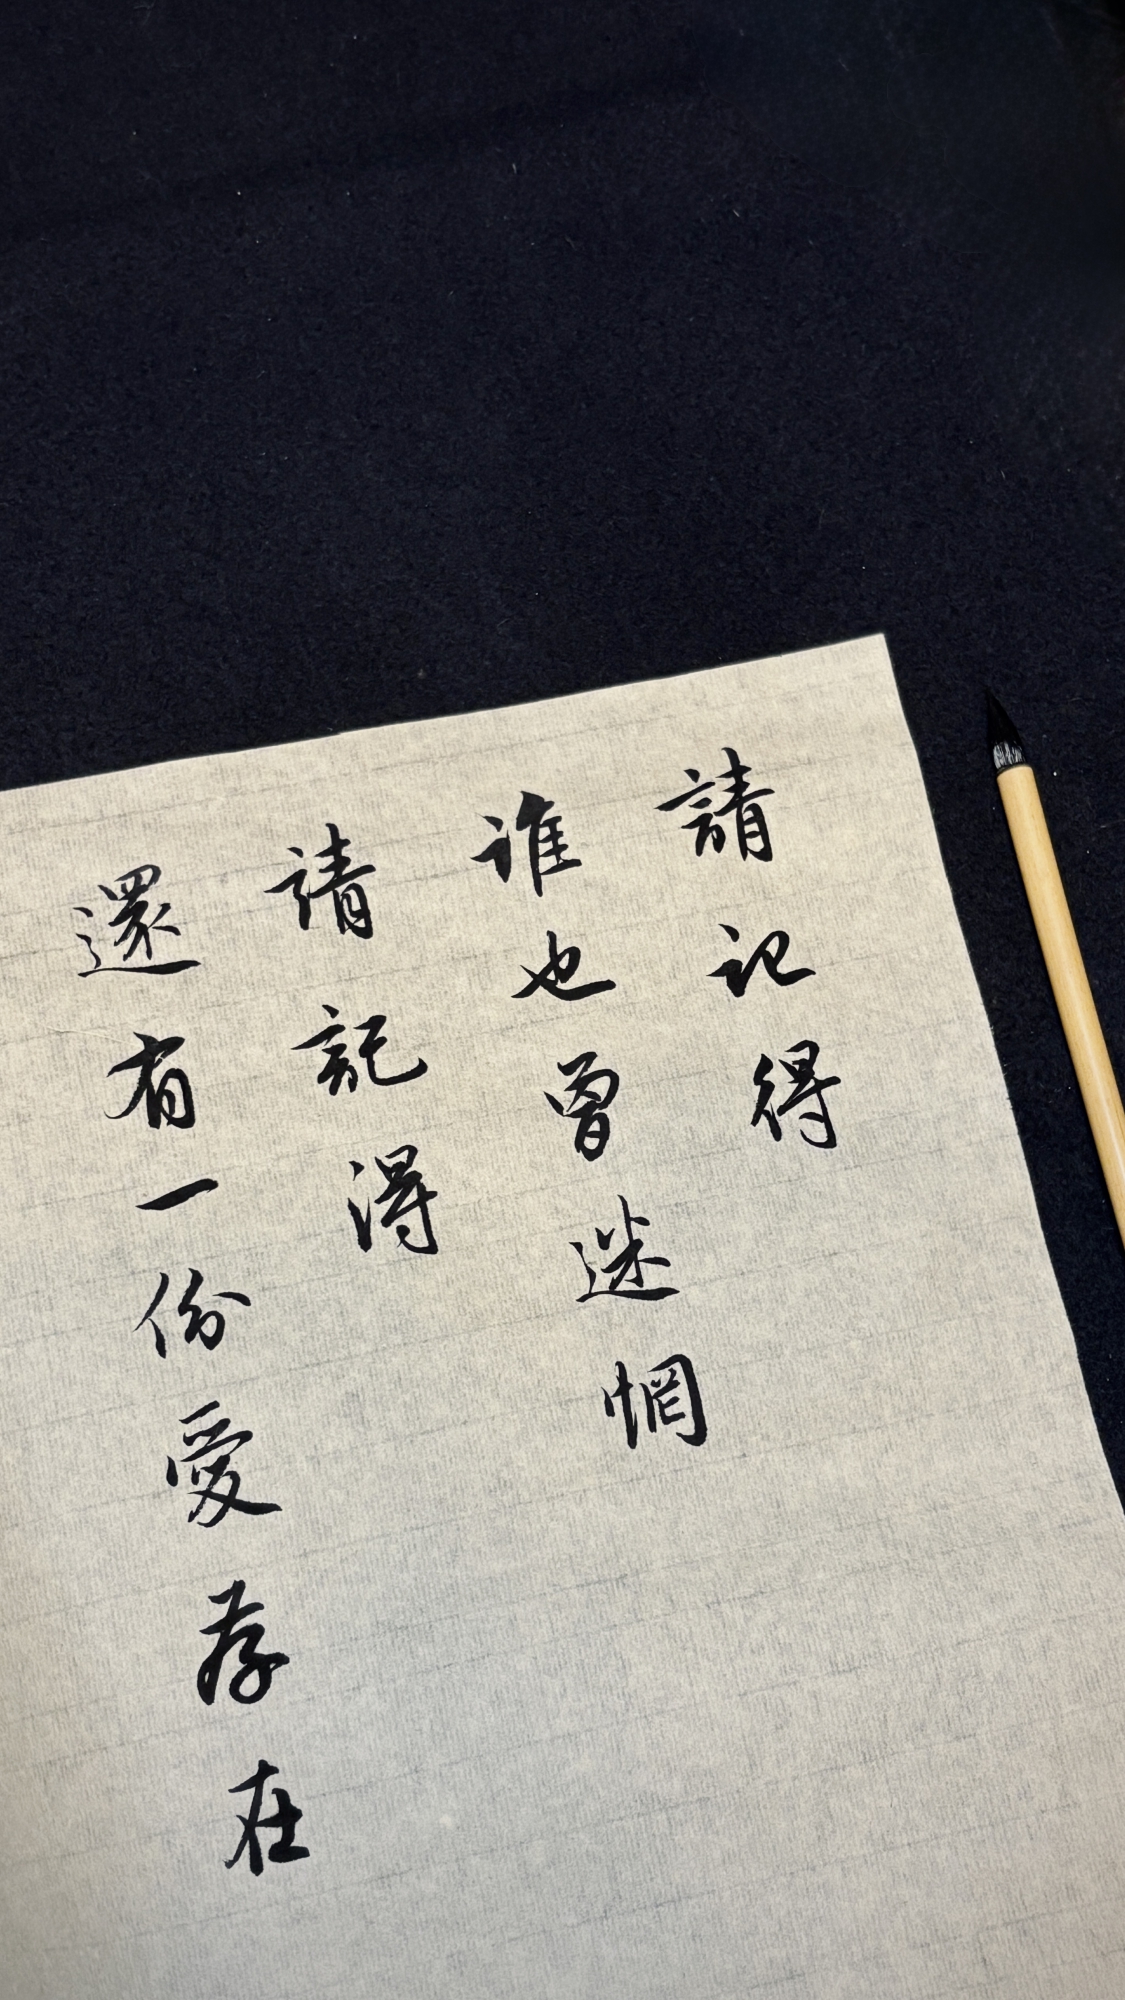 請记得
谁也曾迷惘
请記得
還有一份愛存在